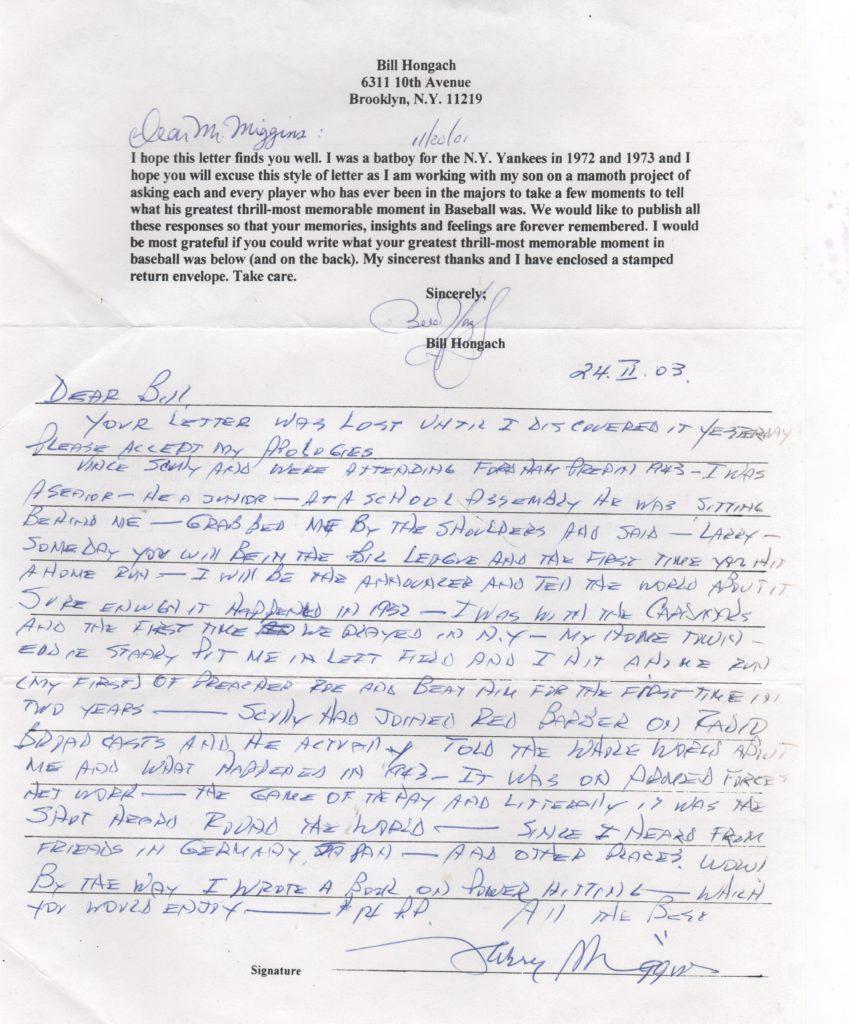 Bill Hongach
6311 10th Avenue
Brooklyn, N.Y. 11219
Dear Mr. Miggins: 11/20/01
I hope this letter finds you well. I was a batboy for the N.Y. Yankees in 1972 and 1973 and I
hope you will excuse this style of letter as I am working with my son on a mammoth project of
asking each and every player who has ever been in the majors to take a few moments to tell
what his greatest thrill-most memorable moment in Baseball was. We would like to publish all
these responses so that your memories, insights and feelings are forever remembered. I would
be most grateful if you could write what your greatest thrill-most memorable moment in
baseball was below (and on the back). My sincerest thanks and I have enclosed a stamped
return envelope. Take care.
Sincerely;
Bill Hongach
24.II.03.
DEAR BILL,
YOUR LETTER WAS LOST UNTIL I DISCOVERED IT YESTERDAY
PLEASE ACCEPT MY APOLOGIES
VINCE SCULLY AND WERE ATTENDING FORDHAM PREP IN 1943 - I WAS
A SENIOR - HE A JUNIOR - AT A SCHOOL ASSEMBLY HE WAS SITTING
BEHIND ME - GRABBED ME BY THE SHOULDERS AND SAID - LARRY -
SOMEDAY YOU WILL BE IN THE BIG LEAGUE AND THE FIRST TIME YOU HIT
A HOME RUN - I WILL BE THE ANNOUNCER AND TELL THE WORLD ABOUT IT
SURE ENUGH IT HAPPENED IN 1952 - I WAS WITH THE CARDINALS
AND THE FIRST TIME WE PLAYED IN N.Y - MY HOME TOWN -
EDDIE STANKY PUT ME IN LEFT FIELD AND I HIT A HOME RUN
(MY FIRST) OF PREACHER ROE AND BEAT HIM FOR THE FIRST TIME IN
TWO YEARS - SCULLY HAD JOINED RED BARBER ON RADIO
BROADCASTS AND HE ACTUALLY TOLD THE WHOLE WORLD ABOUT
ME AND WHAT HAPPENED IN 1943 - IT WAS ON ARMED FORCES
NETWORK - THE GAME OF THE DAY AND LITTERALLY IT WAS THE
SHOT HEARD ROUND THE WORLD - SINCE I HEARD FROM
FRIENDS IN GERMANY, JAPAN - AND OTHER PLACES. WOW!
BY THE WAY I WROTE A BOOK ON POWER HITTING - WHICH
YOU WOULD ENJOY - $14 P.P. ALL THE BEST
Signature Larry Miggins